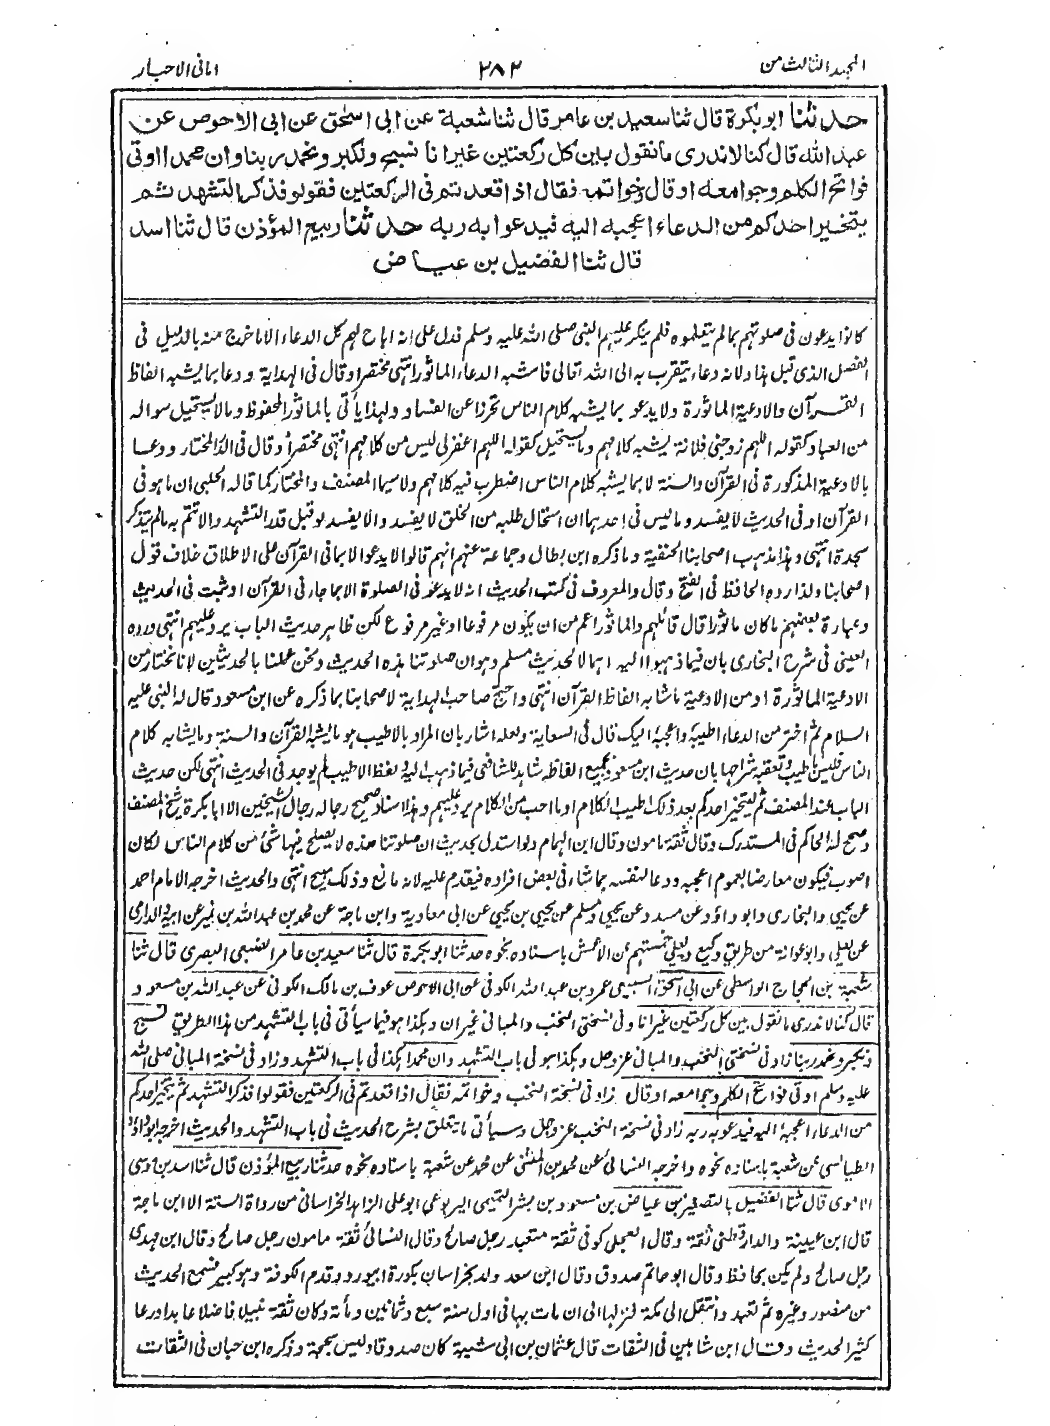 المجلد الثالث من
٢٨٢
امانی الاحبار
حدثنا ابوبکرة قال ثنا سعید بن عامر قال ثنا شعبة عن ابی اسحٰق عن ابی الاحوص عن
عبد الله قال کنا لا ندری ما نقول بین کل رکعتین غیر انا نسبح ونکبر ونحمد ربنا وان محمدا اوتی
فواتح الکلم وجوامعه او قال وخواتمه فقال اذا قعدتم فی الرکعتین فقولو فذکر التشهد ثم
یتخیر احدکم من الدعاء اعجبه الیه فیدعوا به ربه حدثنا ربیع المؤذن قال ثنا اسد
قال ثنا الفضیل بن عیاض
کانوا یدعون فی صلوتهم بمالم یتعلموه فلم ینکر علیهم النبی صلی الله علیه وسلم فدل علی انه اباح لهم کل الدعاء الا ما خرج منه بالدلیل فی
الفصل الذی قبل هذا ولانه دعاء یتقرب به الی الله تعالی فاشبه الدعاء الماثور انتهی مختصرا وقال فی الهدایة ودعا بما یشبه الفاظ
القرآن والادعیة الماثورة ولا یدعو بما یشبه کلام الناس تحرزا عن الفساد ولهذا یأتی بالماثور المحفوظ وما لا یستحیل سواله
من العباد کقوله اللهم زوجنی فلانة یشبه کلامهم وما یستحیل کقوله اللهم اغفرلی لیس من کلامهم انتهی مختصرا وقال فی الدر المختار ودعا
بالادعیة المذکورة فی القرآن والسنة لا بما یشبه کلام الناس اضطرب فیه کلامهم ولا سیما المصنف والمختار کما قاله الحلبی ان ما هو فی
القرآن او فی الحدیث لا یفسد وما لیس فی احدهما ان استحال طلبه من الخلق لا یفسد والا یفسد لو قبل قدر التشهد والا تتم به مالم یتذکر
سجدة انتهی وهذا مذهب اصحابنا الحنفیة وما ذکره ابن بطال وجماعة عنهم انهم قالوا لا یدعو الا بما فی القرآن علی الاطلاق خلاف قول
اصحابنا ولذا رده الحافظ فی الفتح وقال والمعروف فی کتب الحدیث انه لا یدعو فی الصلوة الا بما جاء فی القرآن او ثبت فی الحدیث
وعبارة بعضهم ماکان ماثورا قال قائلهم والماثور اعم من ان یکون مرفوعا او غیر مرفوع لکن ظاهر حدیث الباب یرد علیهم انتهی ورده
العینی فی شرح البخاری بان فیما ذهبوا الیه اهمالا لحدیث مسلم وهو ان صلوتنا هذه الحدیث ونحن عملنا بالحدیثین لانا نختار من
الادعیة الماثورة او من الادعیة ما شابه الفاظ القرآن انتهی واحتج صاحب الهدایة لاصحابنا بما ذکره عن ابن مسعود قال له النبی علیه
السلام ثم اختر من الدعاء اطیبه واعجبه الیک قال فی السعایة ولعله اشار بان المراد بالاطیب هو ما یشبه القرآن والسنة وما یشابه کلام
الناس فلیس باطیب وتعقبه شراحها بان حدیث ابن مسعود بجمیع الفاظه شاهد للشافعی فیما ذهب الیه ولفظ الاطیب لم یوجد فی الحدیث انتهی لکن حدیث
الباب عند المصنف ثم لیتخیر احدکم بعد ذلک اطیب الکلام او ما احب من الکلام یرد علیهم وهذا سناد صحیح رجاله رجال الشیخین الا ابا بکرة شیخ المصنف
وصحح له الحاکم فی المستدرک وقال ثقة مامون وقال ابن الهمام ولو استدل بحدیث ان صلوتنا هذه لا یصلح فیها شیٔ من کلام الناس لکان
اصوب فیکون معارضا بعموم اعجبه ودعا لنفسه بما شاء فی بعض افراده فیقدم علیه لانه مانع وذلک مبیح انتهی والحدیث اخرجه الامام احمد
عن یحیی والبخاری وابو داؤد عن مسدد عن یحیی ومسلم عن یحیی بن یحیی عن ابی معاویة وابن ماجة عن محمد بن عبد الله بن نمیر عن ابیه والدارمی
عن یعلی وابو عوانة من طریق وکیع ویعلی خمستهم عن الاعمش باسناده نحوه حدثنا ابوبکرة قال ثنا سعید بن عامر الضبعی البصری قال ثنا
شعبة بن الحجاج الواسطی عن ابی اسحق السبیعی عمرو بن عبد الله الکوفی عن ابی الاحوص عوف بن مالک الکوفی عن عبد الله بن مسعود
قال کنا لا ندری ما نقول بین کل رکعتین غیر انا وفی نسختی النخب والمبانی غیر ان وهکذا هو فیما سیأتی فی باب التشهد من هذا الطریق نسبح
ونکبر ونحمد ربنا زاد فی نسختی النخب والمبانی عز وجل وهکذا هو فی باب التشهد وان محمدا هکذا فی باب التشهد وزاد فی نسخة المبانی صلی الله
علیه وسلم اوتی فواتح الکلم وجوامعه او قال زاد فی نسخة النخب وخواتمه فقال اذا قعدتم فی الرکعتین فقولوا فذکر التشهد ثم یتخیر احدکم
من الدعاء اعجبه الیه فیدعو به ربه زاد فی نسخة النخب عز وجل وسیأتی ما یتعلق بشرح الحدیث فی باب التشهد والحدیث اخرجه ابوداؤد
الطیالسی عن شعبة باسناده نحوه واخرجه النسائی عن محمد بن المثنی عن محمد عن شعبة باسناده نحوه حدثنا ربیع المؤذن قال ثنا اسد بن موسی
الاموی قال ثنا الفضیل بالتصغیر بن عیاض بن مسعود بن بشر التمیمی الیربوعی ابو علی الزاهد الخراسانی من رواة الستة الا ابن ماجة
قال ابن عیینة والدارقطنی ثقة وقال العجلی کوفی ثقة متعبد رجل صالح وقال النسائی ثقة مامون رجل صالح وقال ابن مهدی
رجل صالح ولم یکن بحافظ وقال ابو حاتم صدوق وقال ابن سعد ولد بخراسان بکورة ابیورد وقدم الکوفة وهو کبیر فسمع الحدیث
من منصور وغیره ثم تعبد وانتقل الی مکة فنزلها الی ان مات بها فی اول سنة سبع وثمانین ومأئة وکان ثقة نبیلا فاضلا عابدا ورعا
کثیر الحدیث وقال ابن شاهین فی الثقات قال عثمان بن ابی شیبة کان صدوقا ولیس بحجة وذکره ابن حبان فی الثقات